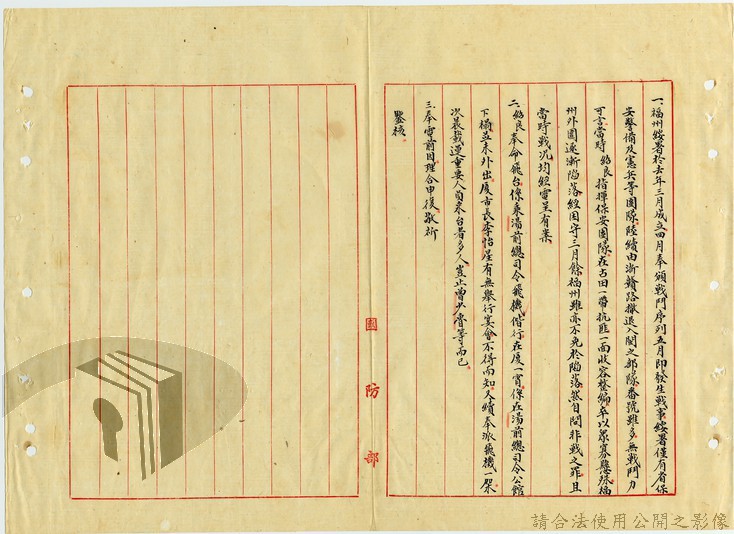 一、福州綏署於去年三月成立四月奉頒戰鬥序列五月即發生戰事綏署僅有省保
安警備及憲兵等團隊陸續由浙贛路撤退入閩之部隊番號雖多無戰鬥力
可言當時紹良指揮保安團隊在古田一帶抗匪一面收容整編卒以眾寡懸殊福
州外圍逐漸陷落經固守三月餘福州雖亦不免於陷落然自問非戰之罪且
當時戰況均經電呈有案
二、紹良奉命飛台係乘湯前總司令飛機偕行在廈一宵係在湯前總司令公館
下榻並未外出廈市長李怡星有無舉行宴會不得而知又續奉派飛機一架
次裝載運重要人員來台者多人豈止曾少瀆等而已
三、奉電前因理合申復敬祈
鑒核
國防部
請合法使用公開之影像